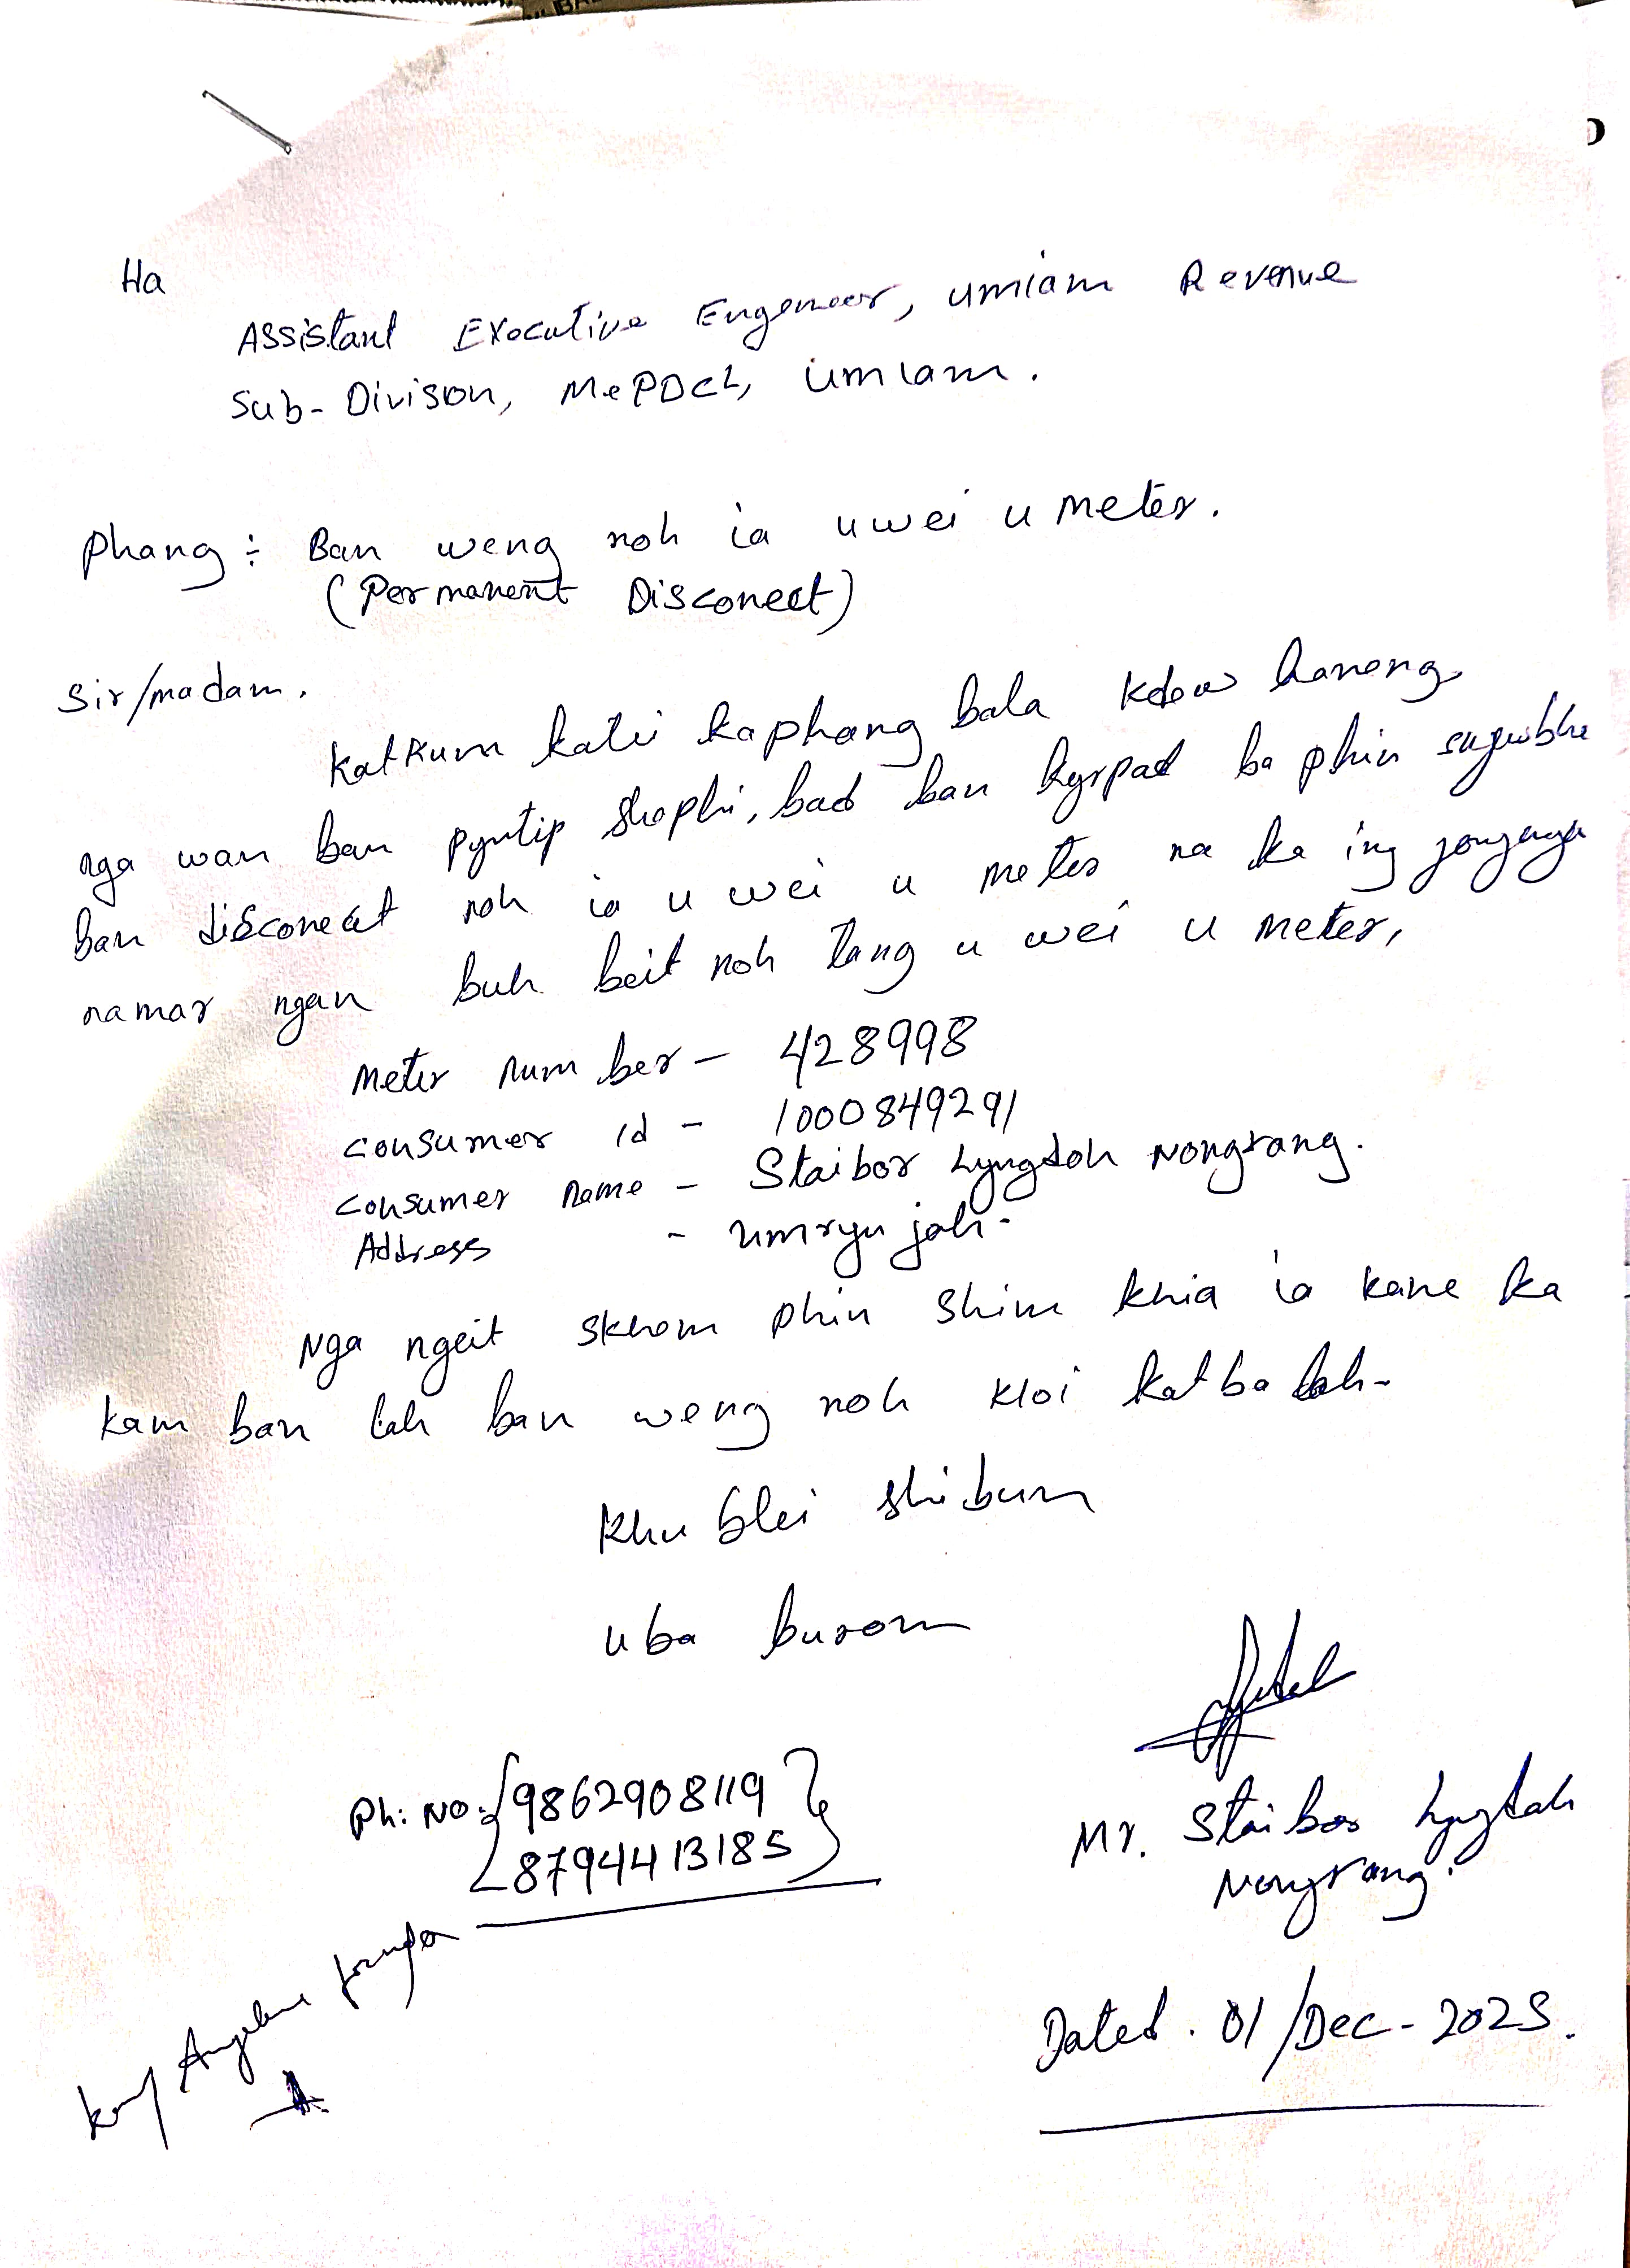 Ha
Assistant Executive Engeneer, umiam Revenue
Sub-Divison, MePDCL, umiam.
Phang :- Ban weng noh ia uwei u meter.
(Permanent Disconect)
Sir/madam.
Katkum katei kaphang bala kdew haneng
nga wan ban pyntip shaphi, bad ban kyrpad ba phin
ban disconect noh ia u wei u meter na ka ing jongnga
namar ngan buh beit noh tang u wei u meter,
meter number - 428998
consumer id - 1000849291
consumer name - Staibor Lyngdoh Nongrang.
Address - umrynjah-
Nga ngeit skhem phin shim khia ia kane ka
kam ban lah ban weng noh kloi katba lah-
Khublei shibun
uba burom
Ph: NO: {9862908119
8794413185}
Mr. Staibor Lyngdoh
Nongrang.
Dated. 01/Dec-2025.